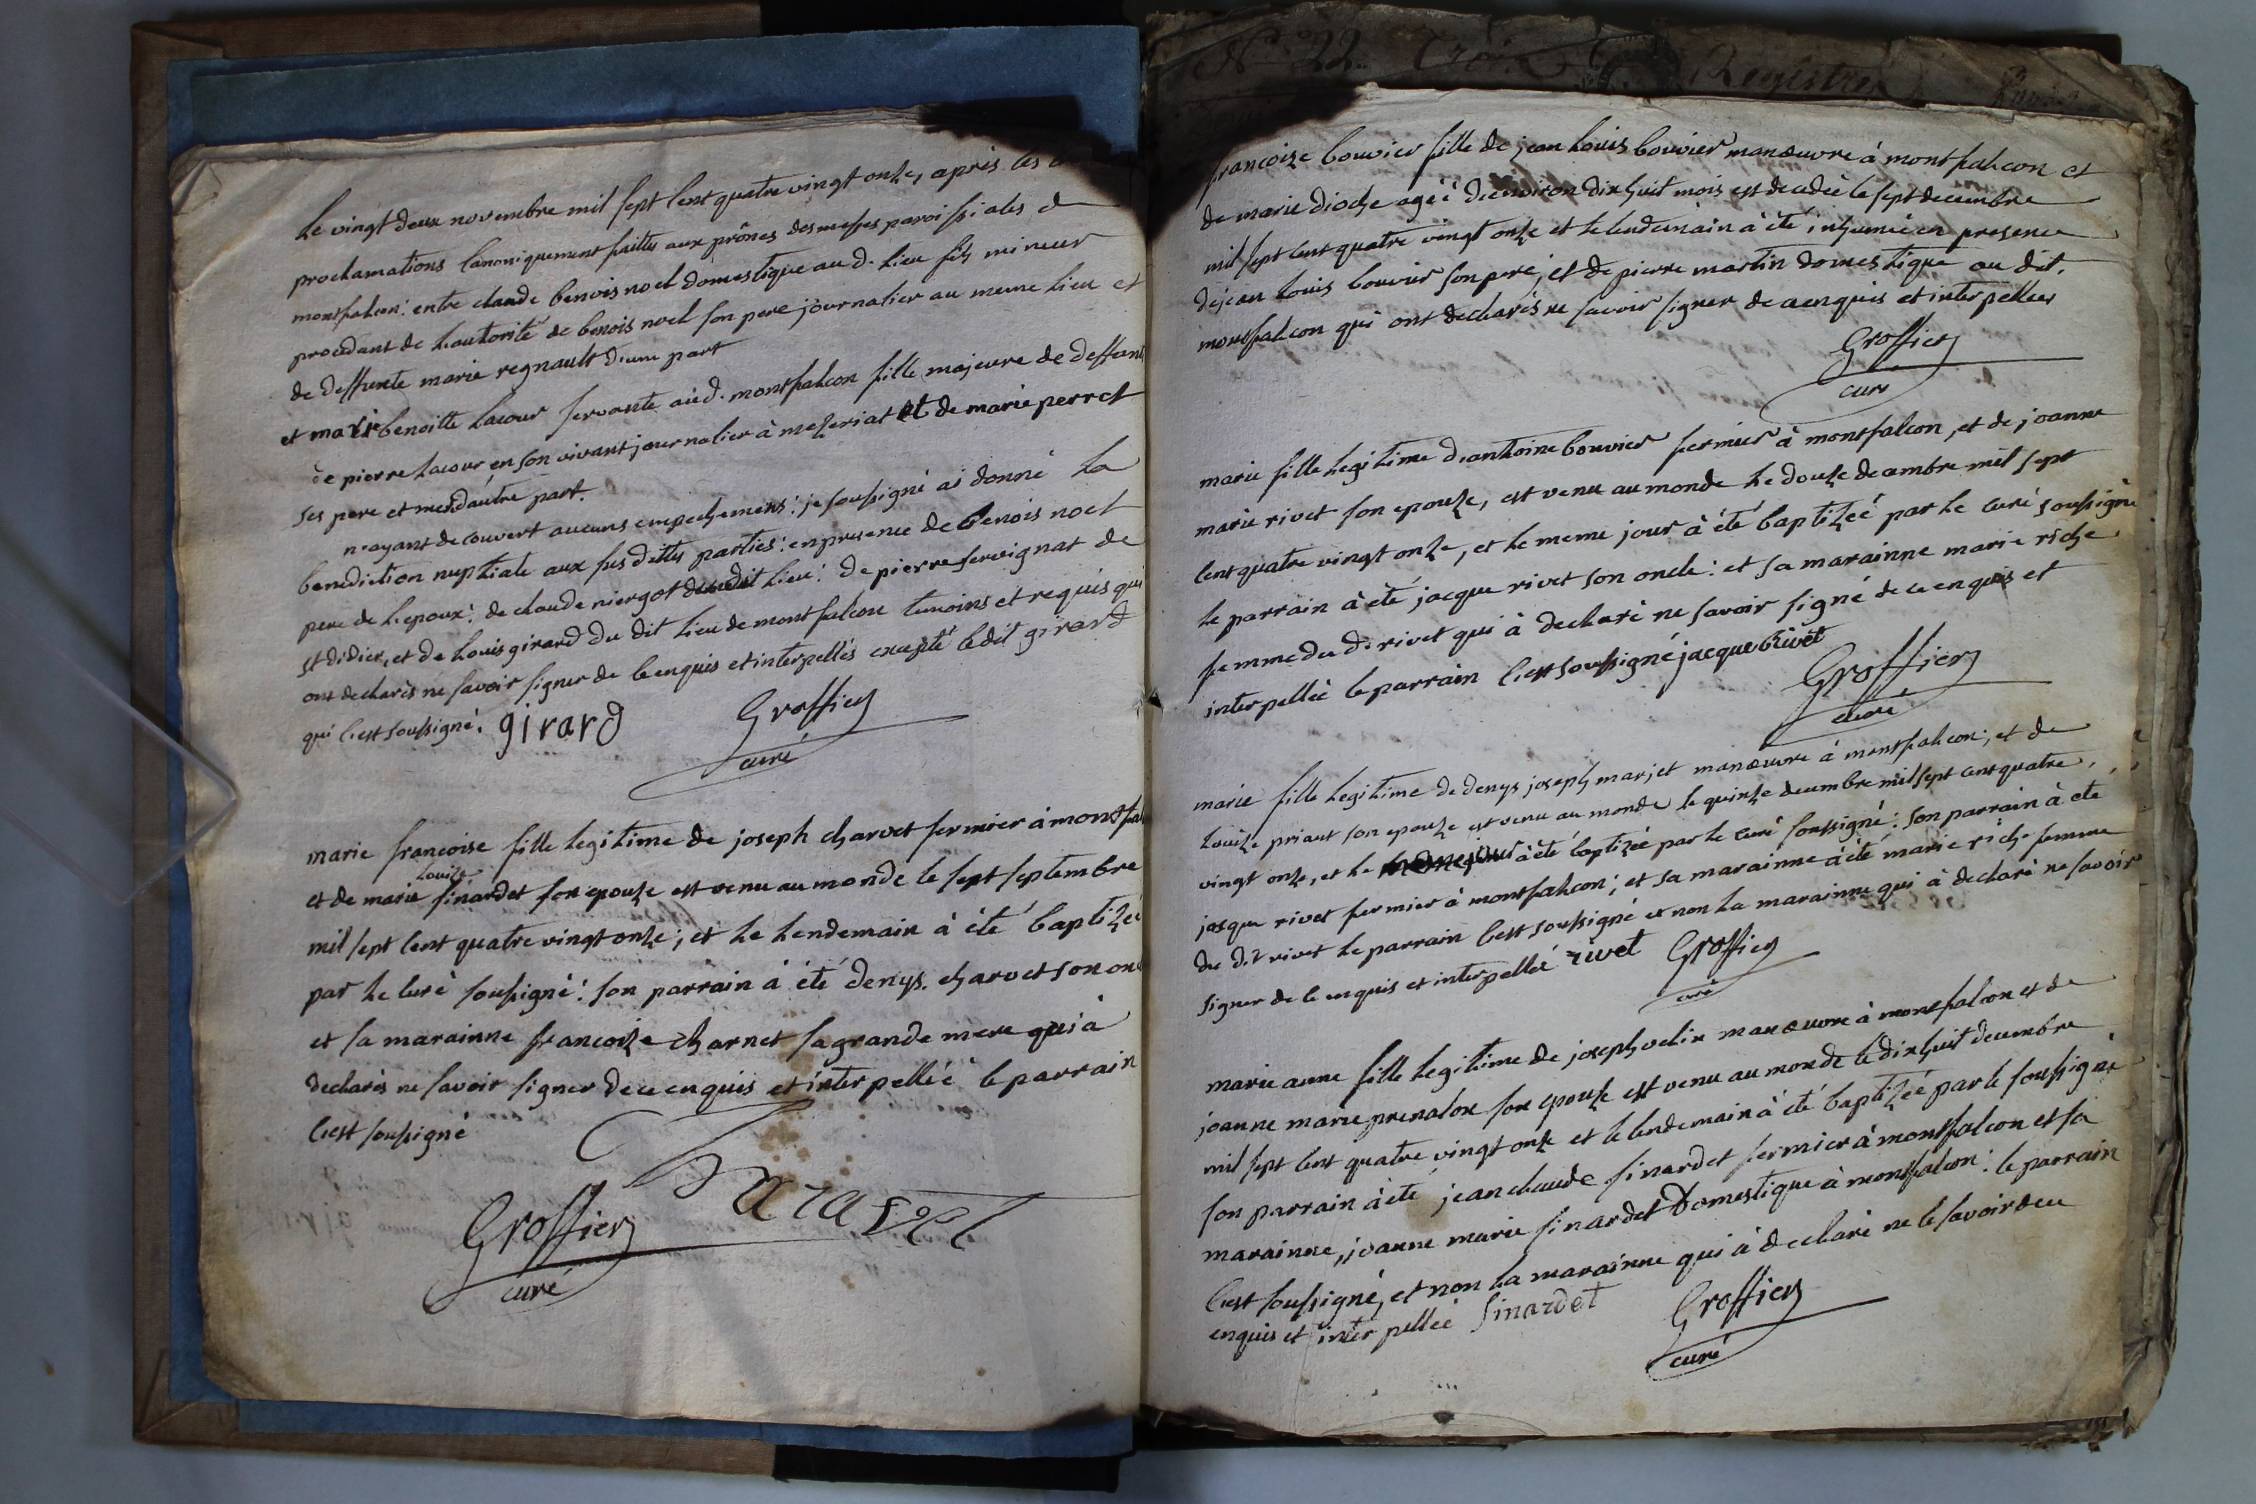 Le vingt deux novembre mil sept cent quatre vingt onze, après les
proclamations canoniquement faittes aux prônes des messes paroissiales de
montfalcon: entre claude benois noel domestique aud. lieu fils mineur
procedant de l'autorité de benois noel son pere journalier au meme lieu et
de deffunte marie regnault d'une part
et marie benoitte lacour servante aud. montfalcon fille majeure de deffunt
de pierre lacour en son vivant journalier à mezeriat et de marie perret
ses pere et mere d'autre part.
n'ayant decouvert aucuns empechemens: je soussigné ai donné la
benediction nuptiale aux susdittes parties: en presence de benois noel
pere de l'epoux: de claude niergot dudit lieu: de pierre servignat de
st didier, et de louis girard du dit lieu de montfalcon temoins et requis qui
ont declarés ne savoir signer de ce enquis et interpellés excepté ledit girard
qui c'est soussigné. girard
Groffier
curé
marie francoise fille legitime de joseph charvet fermier à montfal
louize
et de marie sinardet son epouze est venu au monde le sept septembre
mil sept cent quatre vingt onze; et le lendemain à été baptizée
par le curé soussigné: son parrain à été denys charvet son on
et sa marainne francoize charnet sa grande mere qui à
declarés ne savoir signer de ce enquis et interpellée le parrain
c'est soussigné
Groffier
curé
N° 22
Registres
francoize bouvier fille de jean louis bouvier manœuvre à montfalcon et
de marie dioche agée d'environ dix huit mois est decedée le sept decembre
mil sept cent quatre vingt onze et le lendemain à été inhumée en presence
de jean louis bouvier son pere, et de pierre martin domestique au dit.
montfalcon qui ont declarés ne savoir signer de ce enquis et interpellées
Groffier
curé
marie fille legitime d'antoine bouvier fermier à montfalcon, et de joanne
marie rivet son epouze, est venu au monde le douze decembre mil sept
cent quatre vingt onze, et le meme jour à été baptizée par le curé soussigné
le parrain à été jacque rivet son oncle: et sa marainne marie riche
femme du d. rivet qui à declaré ne savoir signé de ce enquis et
interpellée le parrain c'est soussigné jacque Rivet
Groffier
curé
marie fille legitime de denys joseph marjet manœuvre à montfalcon; et de
louize priaut son epouze est venu au monde le quinze decembre mil sept cent quatre
vingt onze, et le meme jour à été baptizée par le curé soussigné: son parrain à été
jasque rivet fermier à montfalcon; et sa marainne à été marie riche femme
du dit rivet le parrain c'est soussigné et non la marainne qui à declaré ne savoir
signer de ce enquis et interpellée rivet Groffier
curé
marie anne fille legitime de joseph velin manœuvre à montfalcon et de
joanne marie prenalon son epouze est venu au monde le dix huit decembre
mil sept cent quatre vingt onze et le lendemain à été baptizée par le soussigné
son parrain à été jean claude sinardet fermier à montfalcon et sa
marainne, joanne marie sinardet domestique à montfalcon: le parrain
c'est soussigné, et non la marainne qui à declaré ne le savoir de ce
enquis et interpellée Sinardet Groffier
curé